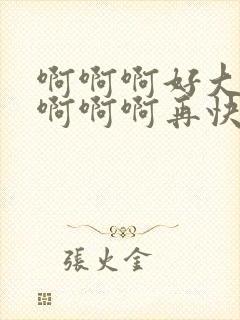 啊啊啊好大
啊啊啊再快
張火金